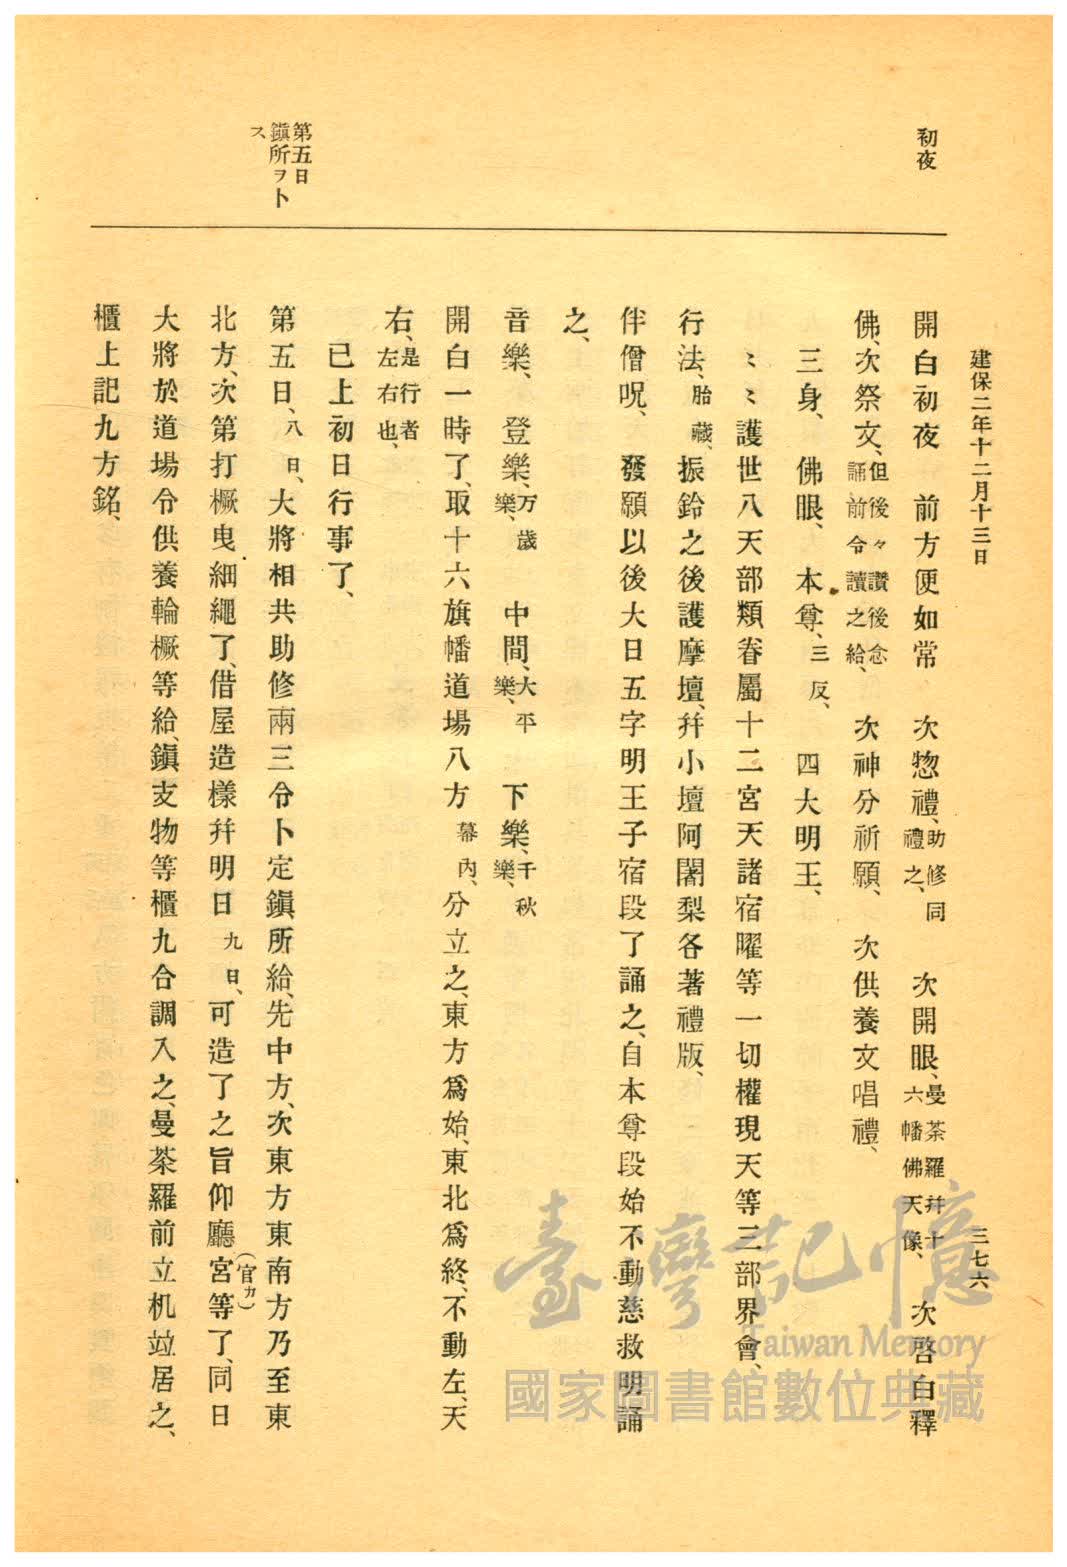 建保二年十二月十三日
三七六
初夜
開白初夜　前方便如常、　次惣禮、助修同禮之、　次開眼、曼荼羅幷十六幡佛天像、　次啓白釋
佛、次祭文、但後々讚後念誦前令讀之給、　次神分祈願、　次供養文唱禮、
三身、　佛眼、　本尊、三反、　四大明王、
〻〻護世八天部類眷屬十二宮天諸宿曜等一切權現天等三部界會、
行法、胎藏、振鈴之後護摩壇、幷小壇阿闍梨各著禮版、
伴僧呪、　發願以後大日五字明王子宿段了誦之、自本尊段始不動慈救明誦
之、
音樂、　登樂、万歲樂、　中間、大平樂、　下樂、千秋樂、
開白一時了、取十六旗幡道場八方幕內、分立之、東方爲始、東北爲終、不動左、天
右、是行者左右也、
已上初日行事了、
第五日鎭所ヲトス、
第五日、八日、大將相共助修兩三令卜定鎭所給、先中方、次東方東南方乃至東
北方、次第打橛曳細繩了、借屋造樣幷明日九日、可造了之旨仰廳宮(官カ)等了、同日
大將於道場令供養輪橛等給、鎭支物等櫃九合調入之、曼荼羅前立机竝居之、
櫃上記九方銘、
臺灣記憶
Taiwan Memory
國家圖書館數位典藏